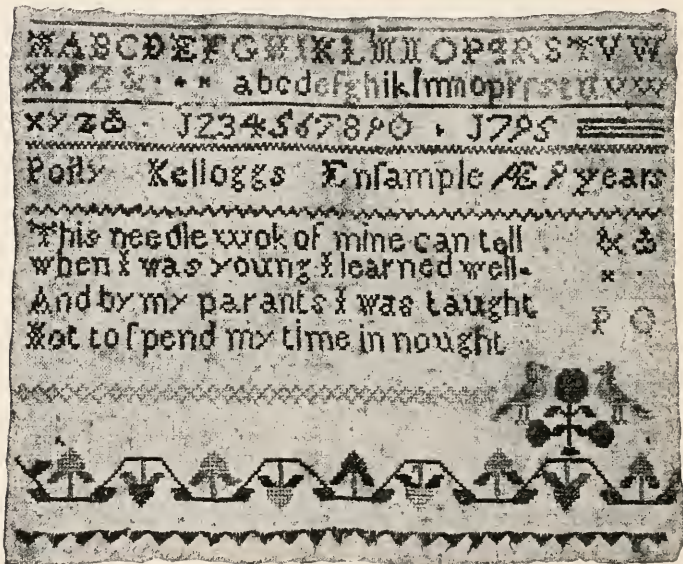 ABCDEFGHIKLMNOPQRSTVW
XYZ& abcdefghiklmnopqrſstuvw
xyz& 1234567890 1795
Polly Kelloggs Enſample Æ 9 years
This needle wok of mine can tell &
when I was young I learned well
And by my parants I was taught
Not to ſpend my time in nought P Q